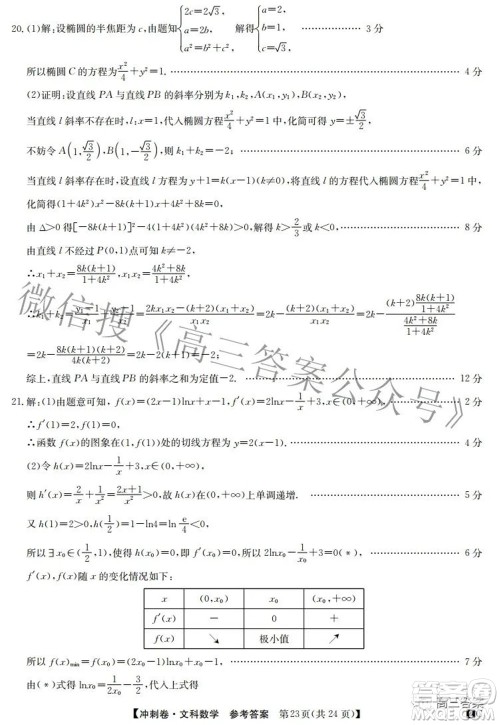 20. (1)解：设椭圆的半焦距为c，由题知{2c=2√3， a=2b， a²=b²+c²， 解得{a=2， b=1， c=√3. …… 3分
所以椭圆C的方程为x²/4+y²=1. …… 4分
(2)证明：设直线PA与直线PB的斜率分别为k₁，k₂，A(x₁，y₁)，B(x₂，y₂)，
当直线l斜率不存在时，l：x=1，代入椭圆方程x²/4+y²=1中，化简得y=±√3/2，
不妨令A(1，√3/2)，B(1，-√3/2)，则k₁+k₂=-2； …… 6分
当直线l斜率存在时，设直线l的方程为y+1=k(x-1)(k≠0)，将直线l的方程代入椭圆方程x²/4+y²=1中，
化简得(1+4k²)x²-8k(k+1)x+4k²+8k=0，
由Δ>0得[-8k(k+1)]²-4(1+4k²)(4k²+8k)>0，解得k>2/3或k<0. …… 8分
由直线l不经过P(0，1)点可知k≠-2，
∴x₁+x₂=8k(k+1)/(1+4k²)，x₁x₂=(4k²+8k)/(1+4k²)，
=2k-8k(k+1)(k+2)/4k(k+2)=2k-2k-2=-2.
综上，直线PA与直线PB的斜率之和为定值-2. …… 12分
21. 解：(1)由题意可知，f(x)=(2x-1)lnx+x-1，∴f′(x)=2lnx-1/x+3， …… 2分
∴f′(1)=2，f(1)=0，
∴函数f(x)的图象在(1，f(1))处的切线方程为y=2(x-1). …… 4分
(2)令h(x)=2lnx-1/x+3，
则h′(x)=2/x+1/x²=(2x+1)/x²>0，故h(x)在(0，+∞)上单调递增. …… 5分
又h(1)=2>0，h(1/2)=1-ln4=ln e/4<0，
所以∃x₀∈(1/2，1)，使得h(x₀)=0，即f′(x₀)=0，所以2lnx₀-1/x₀+3=0(*)， …… 6分
f′(x)，f(x)随x的变化情况如下：
x (0，x₀) x₀ (x₀，+∞)
f′(x) - 0 +
f(x) ↘ 极小值 ↗
所以f(x)min=f(x₀)=(2x₀-1)lnx₀+x₀-1. …… 7分
由(*)式得
【冲刺卷·文科数学 参考答案 第23页(共24页)】
微信搜《高三答案公众号》
高三答案